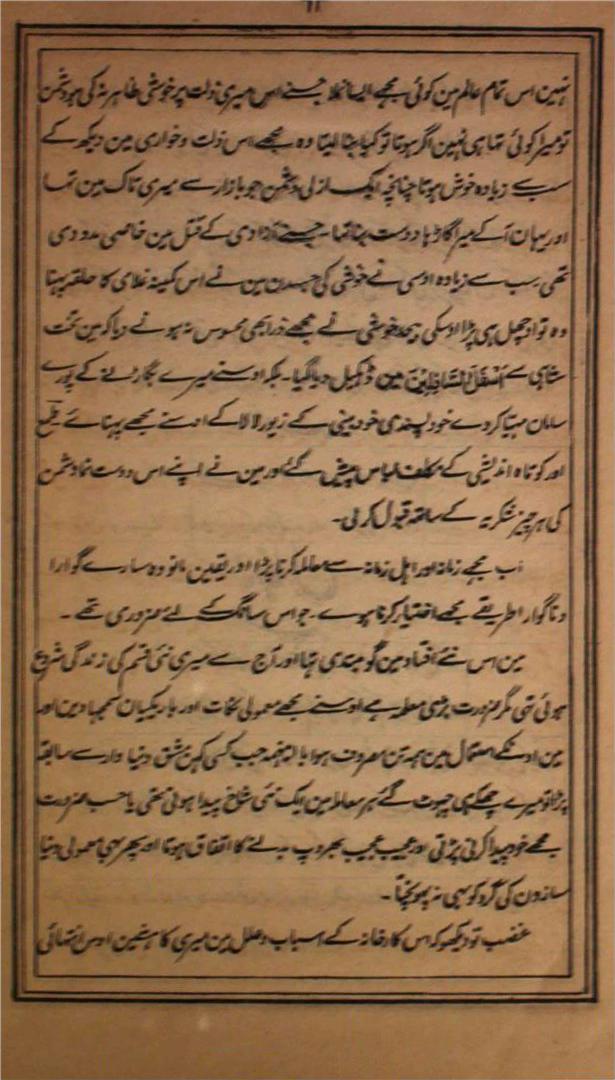 ۱۱
نہین اس تمام عالم مین کوئی مجھے ایسا نملا جسنے اس میری ذلت پر خوشی ظاہر نہ کی ہو دشمن
تو میرا کوئی تھا ہی نہین اگر ہوتا تو کیا بنا لیتا وہ مجھے اس ذلت و خواری مین دیکھ کے
سب سے زیادہ خوش ہوتا چنانچہ ایک ازلی دشمن جو بازار سے میری تاک مین تھا
اور یہان آ کے میرا گاڑہا دوست بنا تھا۔ جسنے آزادی کے قتل مین خاصی مدد دی
تھی سب سے زیادہ اوسی نے خوشی کی جسدن مین نے اس کمینہ غلامی کا حلقہ پہنا
وہ تو اوچھل ہی پڑا اوسکی بیحد خوشی نے مجھے ذرا بھی محسوس نہ ہونے دیا کہ مین تخت
شاہی سے اَسْفَلَ السَّافِلِیْنَ مین ڈہکیل دیا گیا۔ بلکہ اوسنے میرے بگاڑنے کے پورے
سامان مہیا کر دے خود پسندی خود بینی کے زیور لا لا کے اوسنے مجھے پہنائے طمع
اور کوتاہ اندیشی کے مکلف لباس پیش کئے گئے اور مین نے اپنے اس دوست نما دشمن
کی ہر چیز شکریہ کے ساتھ قبول کر لی۔
اب مجھے زمانہ اور اہل زمانہ سے معاملہ کرنا پڑا اور یقین مانو وہ سارے گوارا
و ناگوار طریقے مجھے اختیار کرنا ہوے۔ جو اس سانگ کے لئے ضروری تھے۔
مین اس نئے افتاد مین گو مبتدی تھا اور آج سے میری نئی قسم کی زندگی شروع
ہوئی تھی مگر ضرورت بڑی معلمہ ہے اوسنے مجھے معمولی نکات اور باریکیان سمجھا دین اور
مین اونکے استعمال مین ہمہ تن مصروف ہوا باایںہمہ جب کسی کہن مشق دنیا دار سے سابقہ
پڑا تو میرے چھکے ہی چھوٹ گئے ہر معاملہ مین ایک نئی شاخ پیدا ہوتی تھی یا حسب ضرورت
مجھے خود پیدا کرنی پڑتی اور عجیب عجیب بھروپ بدلنے کا اتفاق ہوتا اور پھر بھی معمولی دنیا
سازون کی گرد کو بھی نہ پہونچتا۔
غضب تو دیکھو کہ اس کارخانہ کے اسباب و علل مین میری کاہشین اوس انتہائی